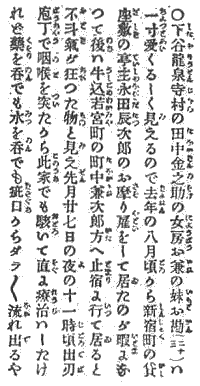 〇下谷龍泉寺村の田中金之助の女房お兼の妹お勘(三十)ハ
一寸愛くるしく見えるので去年の八月頃から新宿町の貸
座敷の亭主永田辰次郎のお摩り雇をして居たのが暇ふ
つて後ハ牛込若宮町の町中兼次郎方へ止宿ふ行て居ると
不斗氣が狂つた物と見え先月廿七日の夜の十一時頃出刃
庖丁で咽喉を突たから此家でも駭いて直ふ療治ハしたけ
れど藥を呑でも水を呑でも疵口からダラ〱流れ出るや